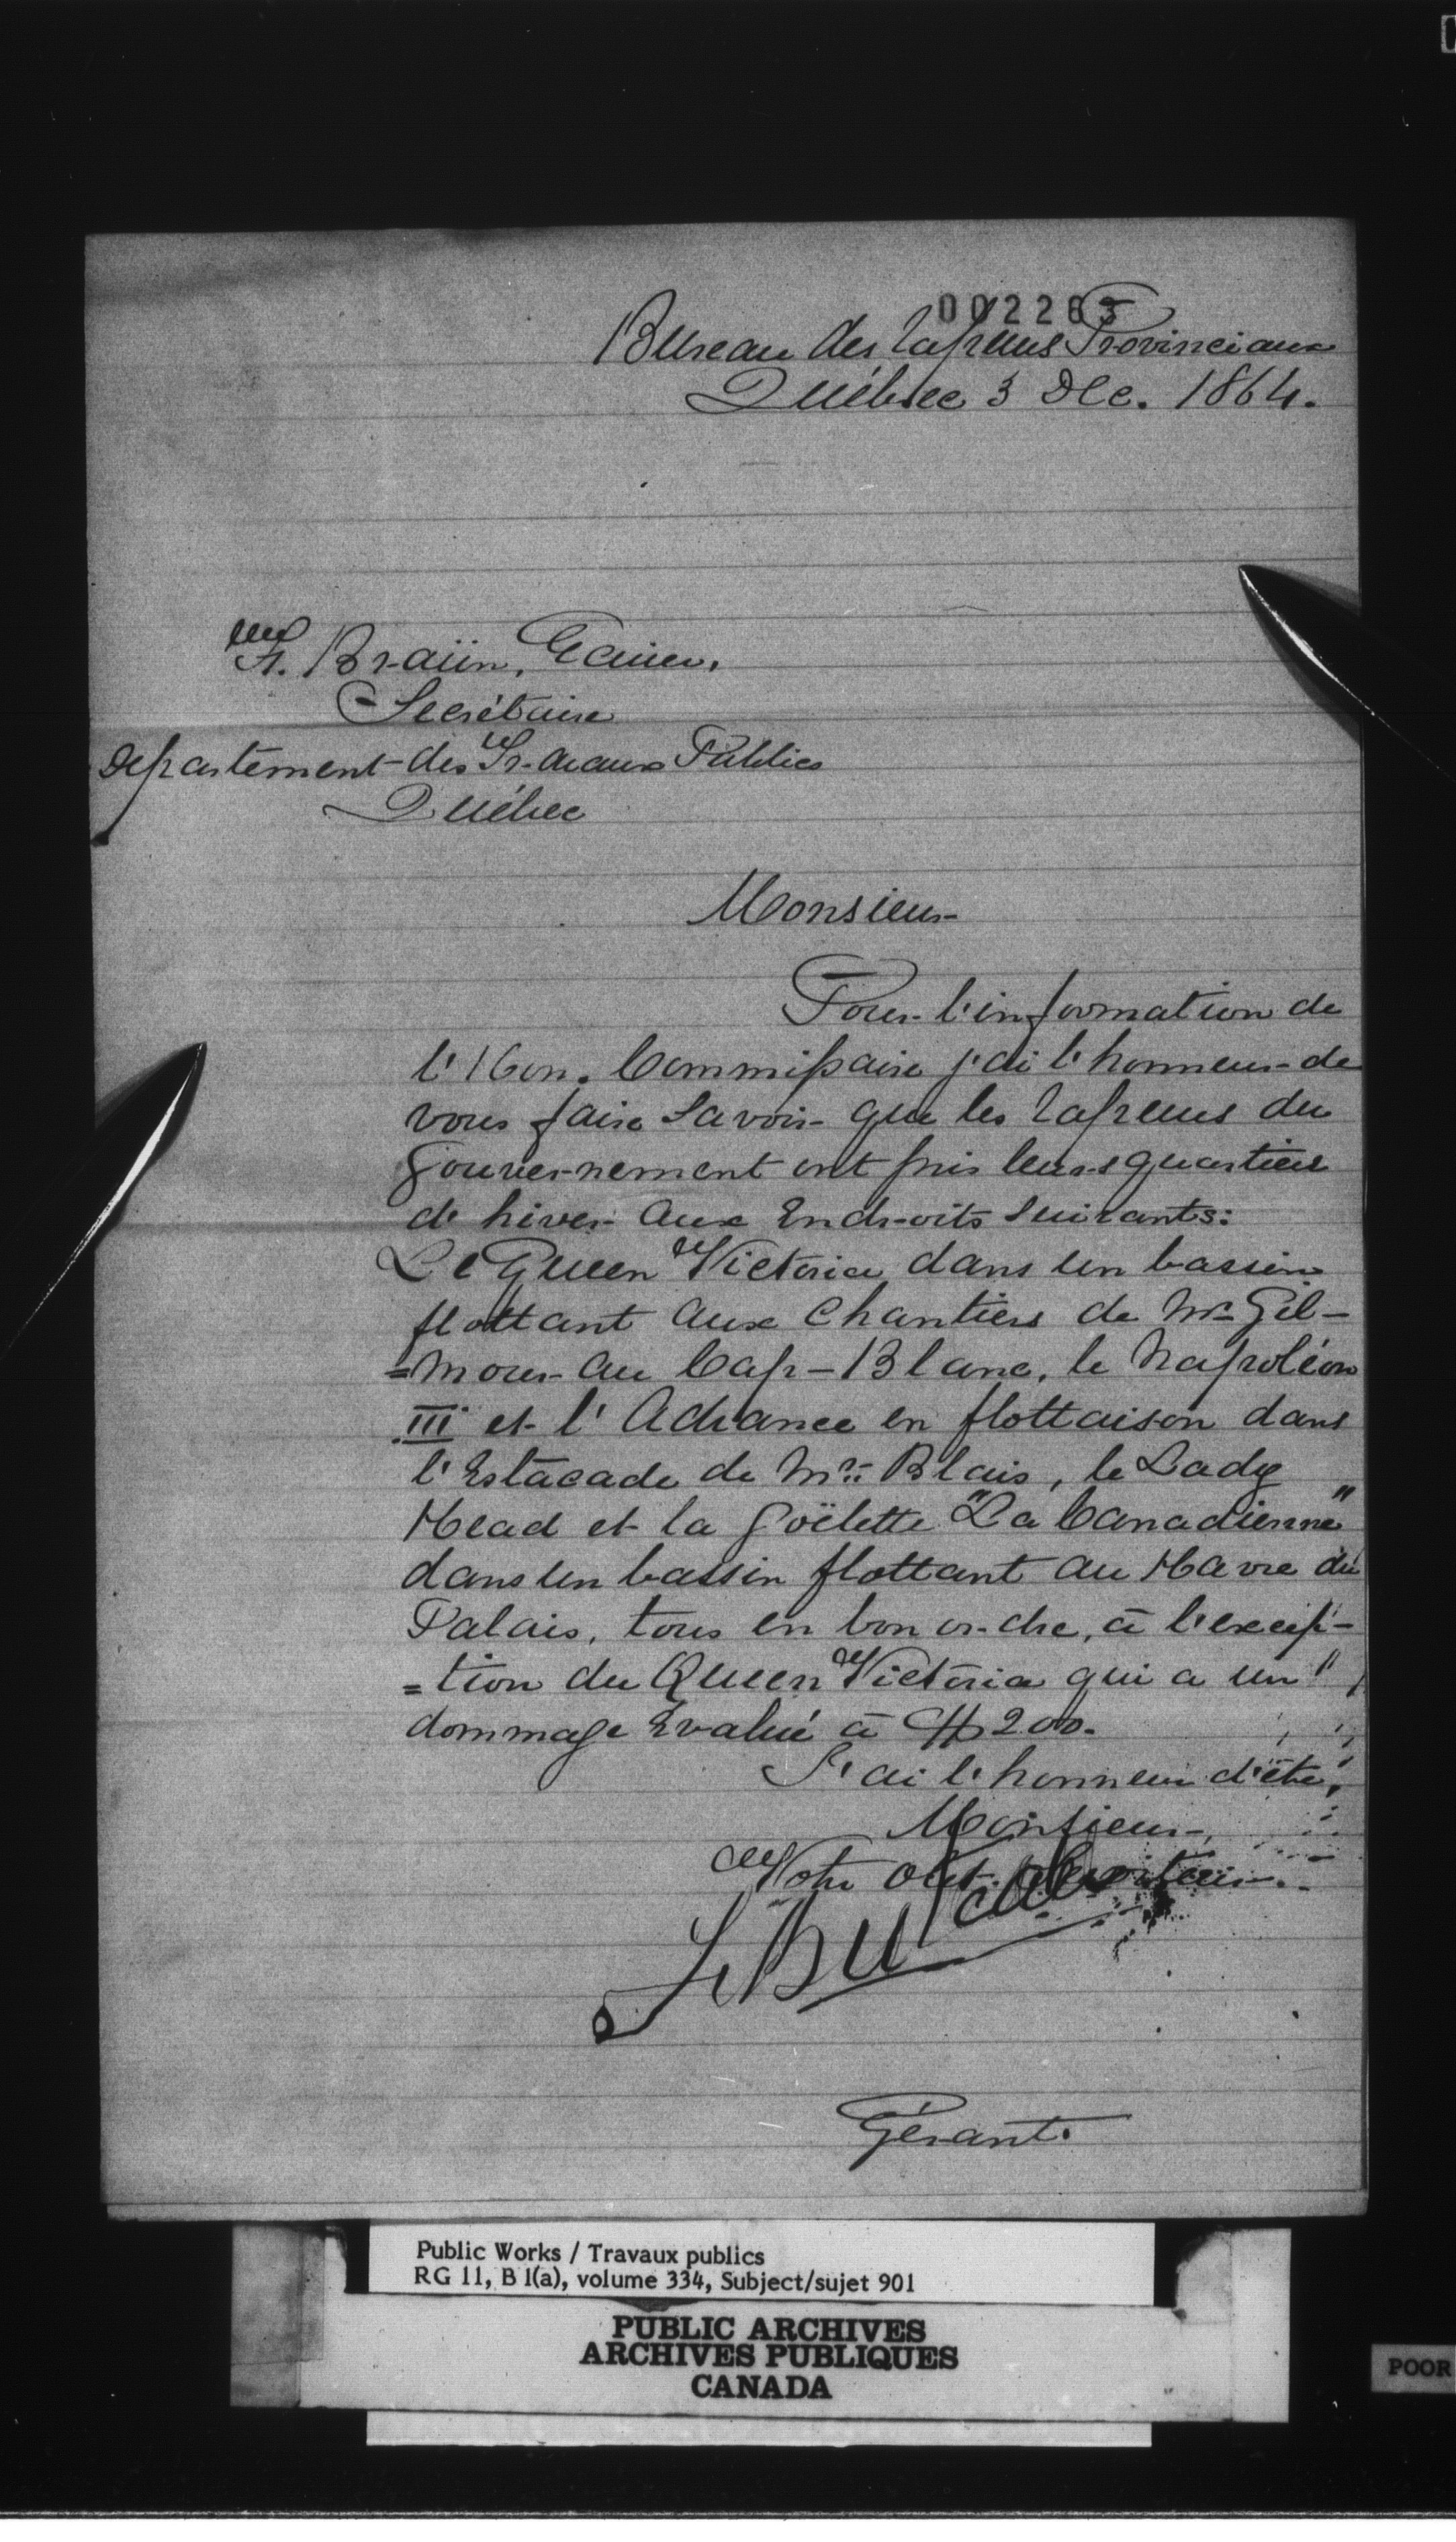 002263
Bureau des Vapeurs Provinciaux
Québec 3 Dec. 1864.
F. Braün, Ecuier,
Secrétaire
Departement des Travaux Publics
Québec
Monsieur
Pour l'information de
l'Hon. Commissaire j'ai l'honneur de
vous faire savoir que les Vapeurs du
Gouvernement ont pris leurs quartiers
d'hiver aux Endroits suivants:
Le Queen Victoria dans un bassin
flottant aux Chantiers de Mr Gil-
=mour au Cap-Blanc, le Napoléon
III et l'Advance en flottaison dans
l'Estacade de Mr Blais, le Lady
Head et la Goëlette "La Canadienne"
dans un bassin flottant au Havre du
Palais, tous en bon ordre, à l'excep-
=tion du Queen Victoria qui a un
dommage Evalué à $200.
J'ai l'honneur d'être,
Monsieur,
Votre Obt. Serviteur.
Gérant.
Public Works / Travaux publics
RG 11, B 1(a), volume 334, Subject/sujet 901
PUBLIC ARCHIVES
ARCHIVES PUBLIQUES
CANADA
POOR